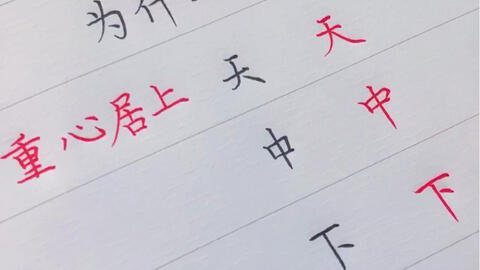 为什
重心居上 天 天
中 中
下 下